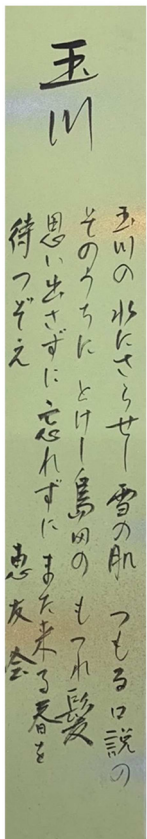 玉川
玉川の水にさらせし雪の肌　つもる口説の
そのうちに とけし島田の もつれ髪
思い出さずに忘れずに また来る春を
待つぞえ　恵友会